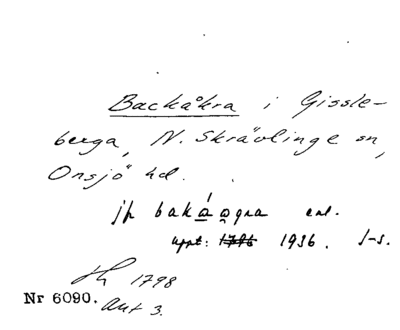 Backåkra i Gissle-
berga, N. Skrävlinge sn,
Onsjö hd.
jfr bakáogra enl.
uppt: 1786 1936. J-s.
1798
Nr 6090. Akt 3.